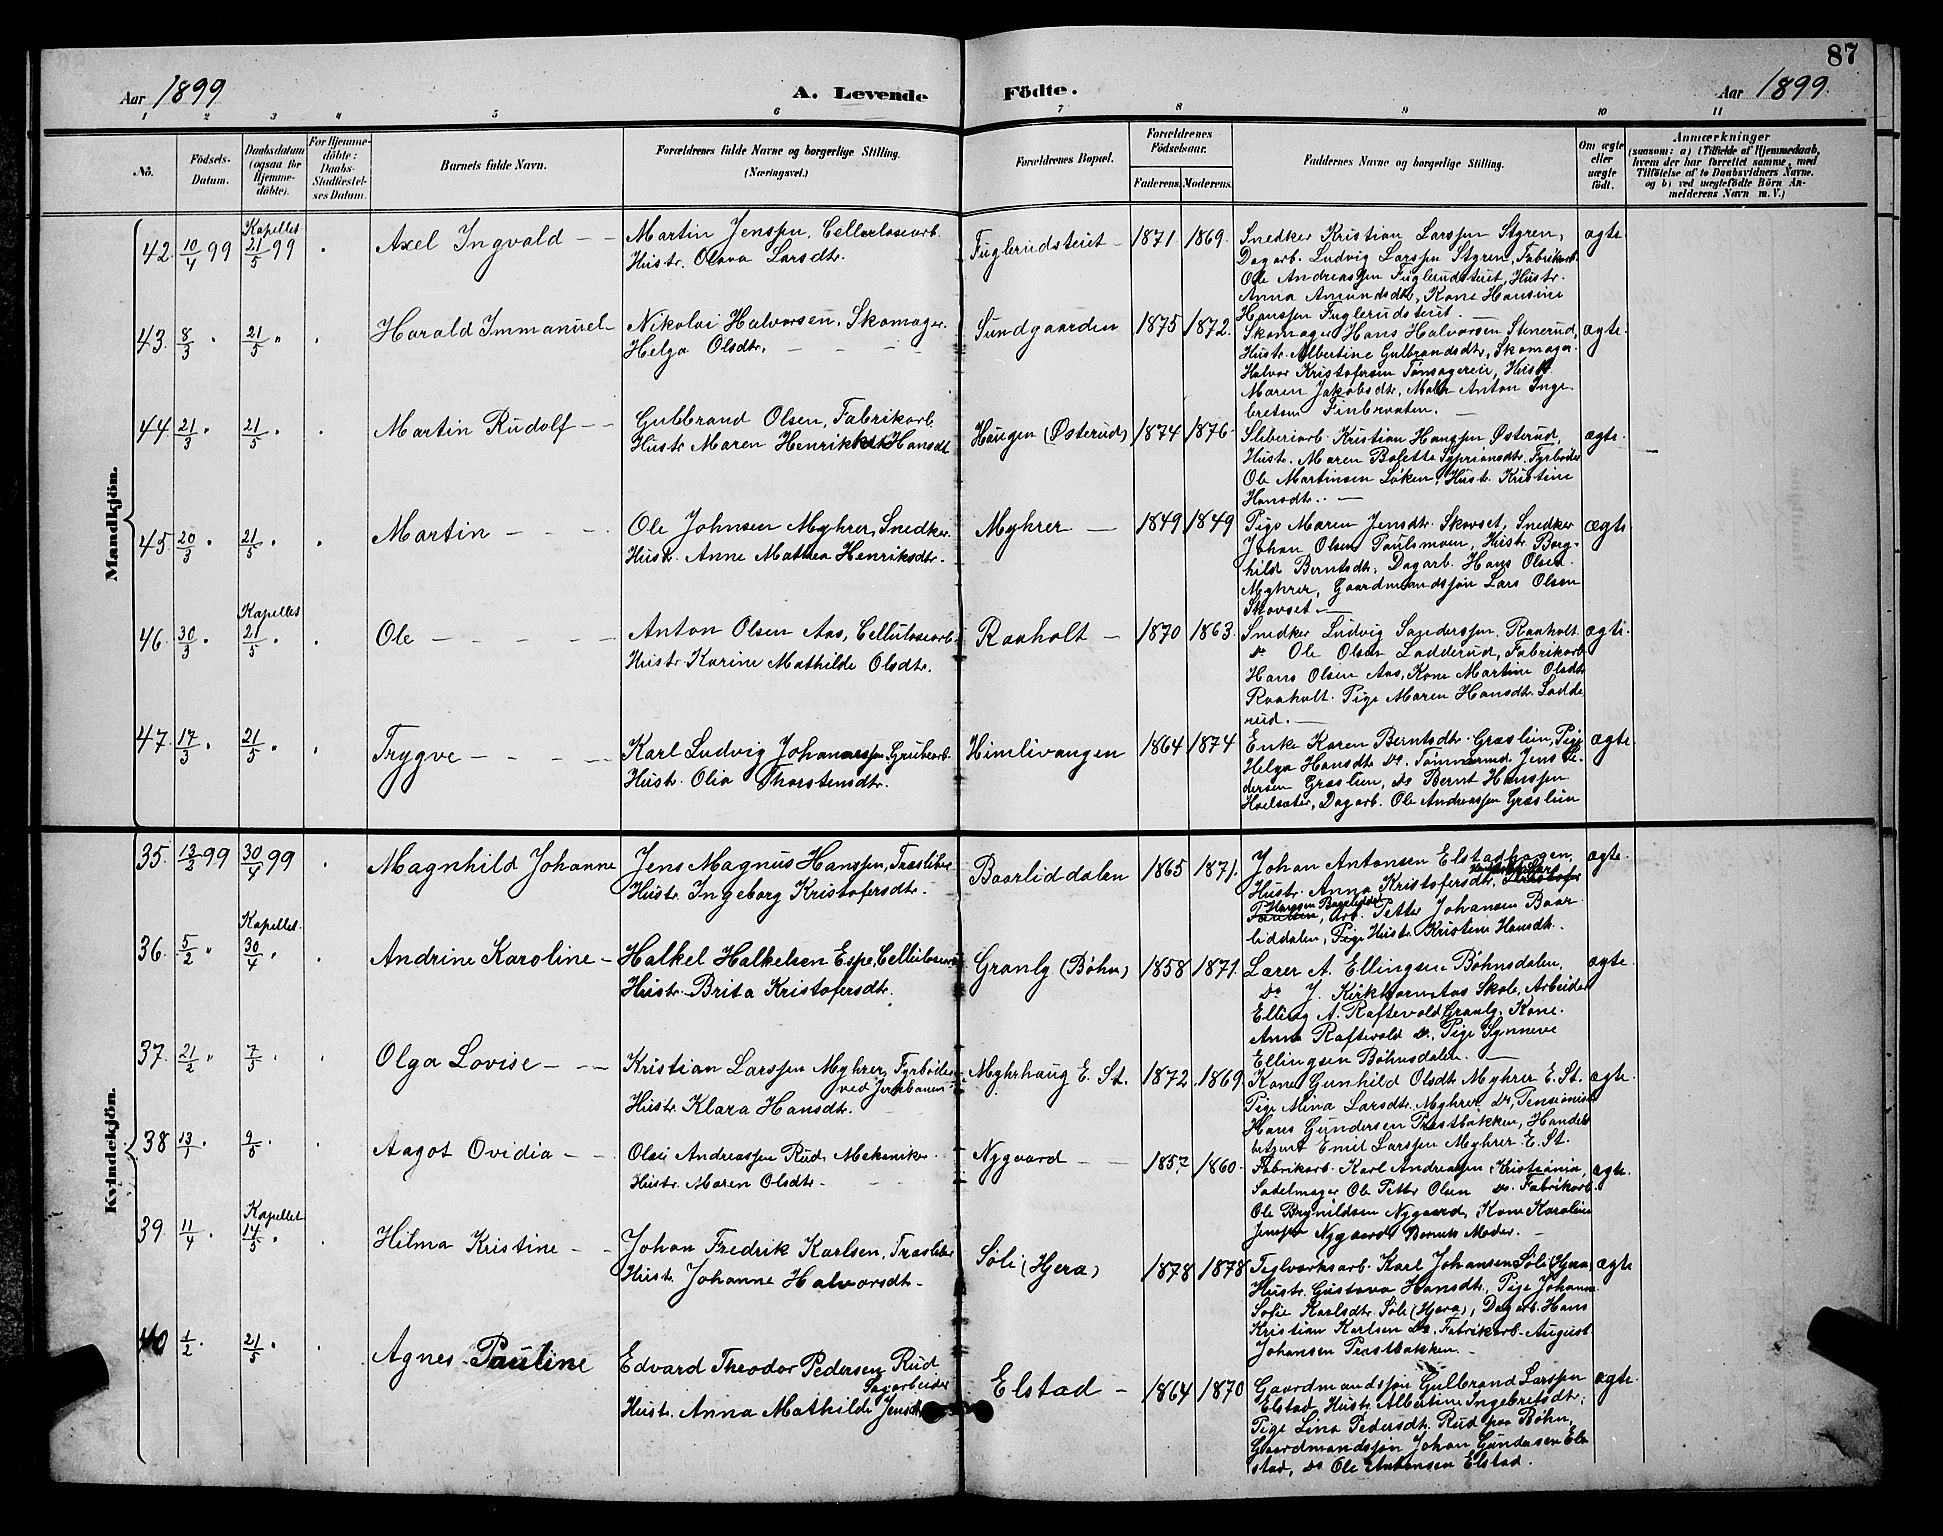 87
Aar 1899
A. Levende
Födte.
Aar 1899.
1 2 3 4 5 6 7 8 9 10 11
No.
Födsels-
Datum.
Daabsdatum
(ogsaa for
Hjemme-
döbte).
For Hjemme-
döbte:
Daabs-
Stadfæstel-
ses Datum.
Barnets fulde Navn.
Forældrenes fulde Navne og borgerlige Stilling.
(Næringsvei.)
Forældrenes Bopæl.
Forældrenes
Födselsaar.
Faderens. Moderens.
Faddernes Navne og borgerlige Stilling.
Om ægte
eller
uægte
födt.
Anmærkninger
(saasom: a) i Tilfælde af Hjemmedaab,
hvem der har forrettet samme, med
Tilföielse af to Daabsvidners Navne.
og b) ved uægtefödte Börn An-
melderens Navn m. V.)
Mandkjön.
42. 10/4 99 Kapellet 21/5 99 Axel Ingvald
Martin Jenssen, Cellulosearb.
Hustr. Olava Larsdtr.
Fuglerudsteiet 1871 1869.
Snedker Kristian Larssen Styren,
Dagarb. Ludvig Larssen Styren, Fabrikarb.
Ole Andreassen Fuglerudsteiet, Hustr.
Anna Amundsdtr, Kone Hansine
Hanssen Fuglerudsteiet.
ægte
43. 8/3 21/5 Harald Immanuel
Nikolai Halvorsen, Skomager.
Helga Olsdtr.
Sundgaarden 1875 1872.
Skomager Hans Halvorsen Stenerud,
Hustr. Albertine Gulbrandsdtr, Skomager
Halvor Kristofersen Tønsagereie, Hustr.
Maren Jakobsdtr, Maler Anton Inge
bretsen Finbraaten.
ægte
44. 21/3 21/5 Martin Rudolf
Gulbrand Olsen, Fabrikarb.
Hustr Maren Hansdt
Haugen (Østerud) 1874 1876
Sliberiarb. Kristian Hanssen Østerud,
Hustr. Maren Bolette Syprionsdtr. Fyrbøder
Ole Martinsen Løken, Hustr. Kristine
Hansdtr.
ægte.
45. 20/3 21/5 Martin
Ole Johnsen Myhrer, Snedker.
Hustr. Anne Mathea Henriksdtr.
Myhrer 1849 1849
Pige Maren Jensdtr. Skovset, Snedker
Johan Olsen Paulsmoen, Hustr Borg-
hild Berntsdtr, Dagarb. Hans Olsen
Myhrer, Gaardmandssøn Lars Olsen
Skovset.
ægte
46. 30/3 Kapellet 21/5 Ole
Anton Olsen Aas, Celluloseearb.
Hustr. Karine Mathilde Olsdtr.
Raaholt 1870 1863.
Snedker Ludvig Sanderssen, Raaholt
Do Ole Olsen Ladderud, Fabrikarb
Hans Olsen Aas, Kone Martine Olsdtr
Raaholt. Pige Maren Hansdtr. Ladde
rud.
ægte.
47. 17/3 21/5 Trygve
Karl Ludvig Johanessen, Grubearb.
Hustr. Olia Thorstensdtr.
Himlivangen 1864 1874
Enke Karen Berntsdtr. Græslien, Pige
Helga Hansdtr Do. Tømmermd. Jens Pe
dersen Græslien, Do Bernt Hanssen
Hoelsæter, Dagarb. Ole Andreassen Græslien
ægte.
Kvindekjön.
35. 13/2 99 30/4 99 Magnhild Johanne
Jens Magnus Hanssen, Træsliber
Hustr. Ingeborg Kristofersdtr.
Baarliddalen 1865 1871.
Johan Antonsen Elstadhagen,
Hustr. Anna Kristofersdtr,
Arb. Petter Johansen Baar
liddalen, Pige Hustr. Kristine Hansdtr.
ægte.
36. 5/2 Kapellet. 30/4 Andrine Karoline
Halkel Halkelsen Espe, Cellulosearb
Hustr. Brita Kristofersdtr.
Granly (Bøhn) 1858 1871.
Lærer A. Ellingsen Bøhnsdalen,
Do J. Kirkhorn Aas Skole. Arbeider
Elling A. Raftevold Granly, Kone
Anna Raftevold Do, Pige Synneve
Ellingsen Bøhnsdalen.
ægte
37. 21/2 7/5 Olga Lovise
Kristian Larssen Myhrer, Fyrbøder
ved Jernbanen
Hustr Klara Hansdtr.
Myhrhaug E. St. 1872 1869.
Kone Gunhild Olsdtr Myhrer E. St.
Pige Mina Larsdtr. Myhrer Do, Pensionist
Hans Gundersen Præstbakken, Handels
betjent Emil Larssen Myhrer E. St.
ægte.
38 13/1 9/5 Aagot Ovidia
Olai Andreassen Rud, Mekaniker.
Hustr. Maren Olsdtr.
Nygaard 1857 1860
Fabrikarb. Karl Andreassen, Kristiania,
Sadelmager Ole Petter Olsen Do. Fabrikarb.
Ole Brynildsen Nygaard, Kone Karoline
Jenssen Nygaard, Barnets Moder.
ægte.
39. 11/4 Kapellet 14/5 Hilma Kristine
Johan Fredrik Karlsen, Træsliber
Hustr. Johanne Halvorsdtr.
Søli (Hjera) 1878 1878
Teglværksarb. Karl Johansen Søli (Hjera)
Hustr. Gustava Hansdtr, Pige Johanne
Sofie Karlsdtr. Søli (Hjera), Dagarb. Hans
Kristian Karlsen Do. Fabrikarb. August
Johansen Præstbakken.
ægte
40 1/2 21/5 Agnes Pauline
Edvard Theodor Pedersen Rud
Sagarbeider
Hustr. Anna Mathilde Jensdtr
Elstad 1864 1870
Gaardmandssøn Gulbrand Larssen
Elstad, Hustr. Albertine Ingebretsdtr,
Pige Lina Pedersdtr. Rud paa Bøhn,
Gaardmandssøn Johan Gundersen El
stad, Do Ole Antonsen Elstad.
ægte